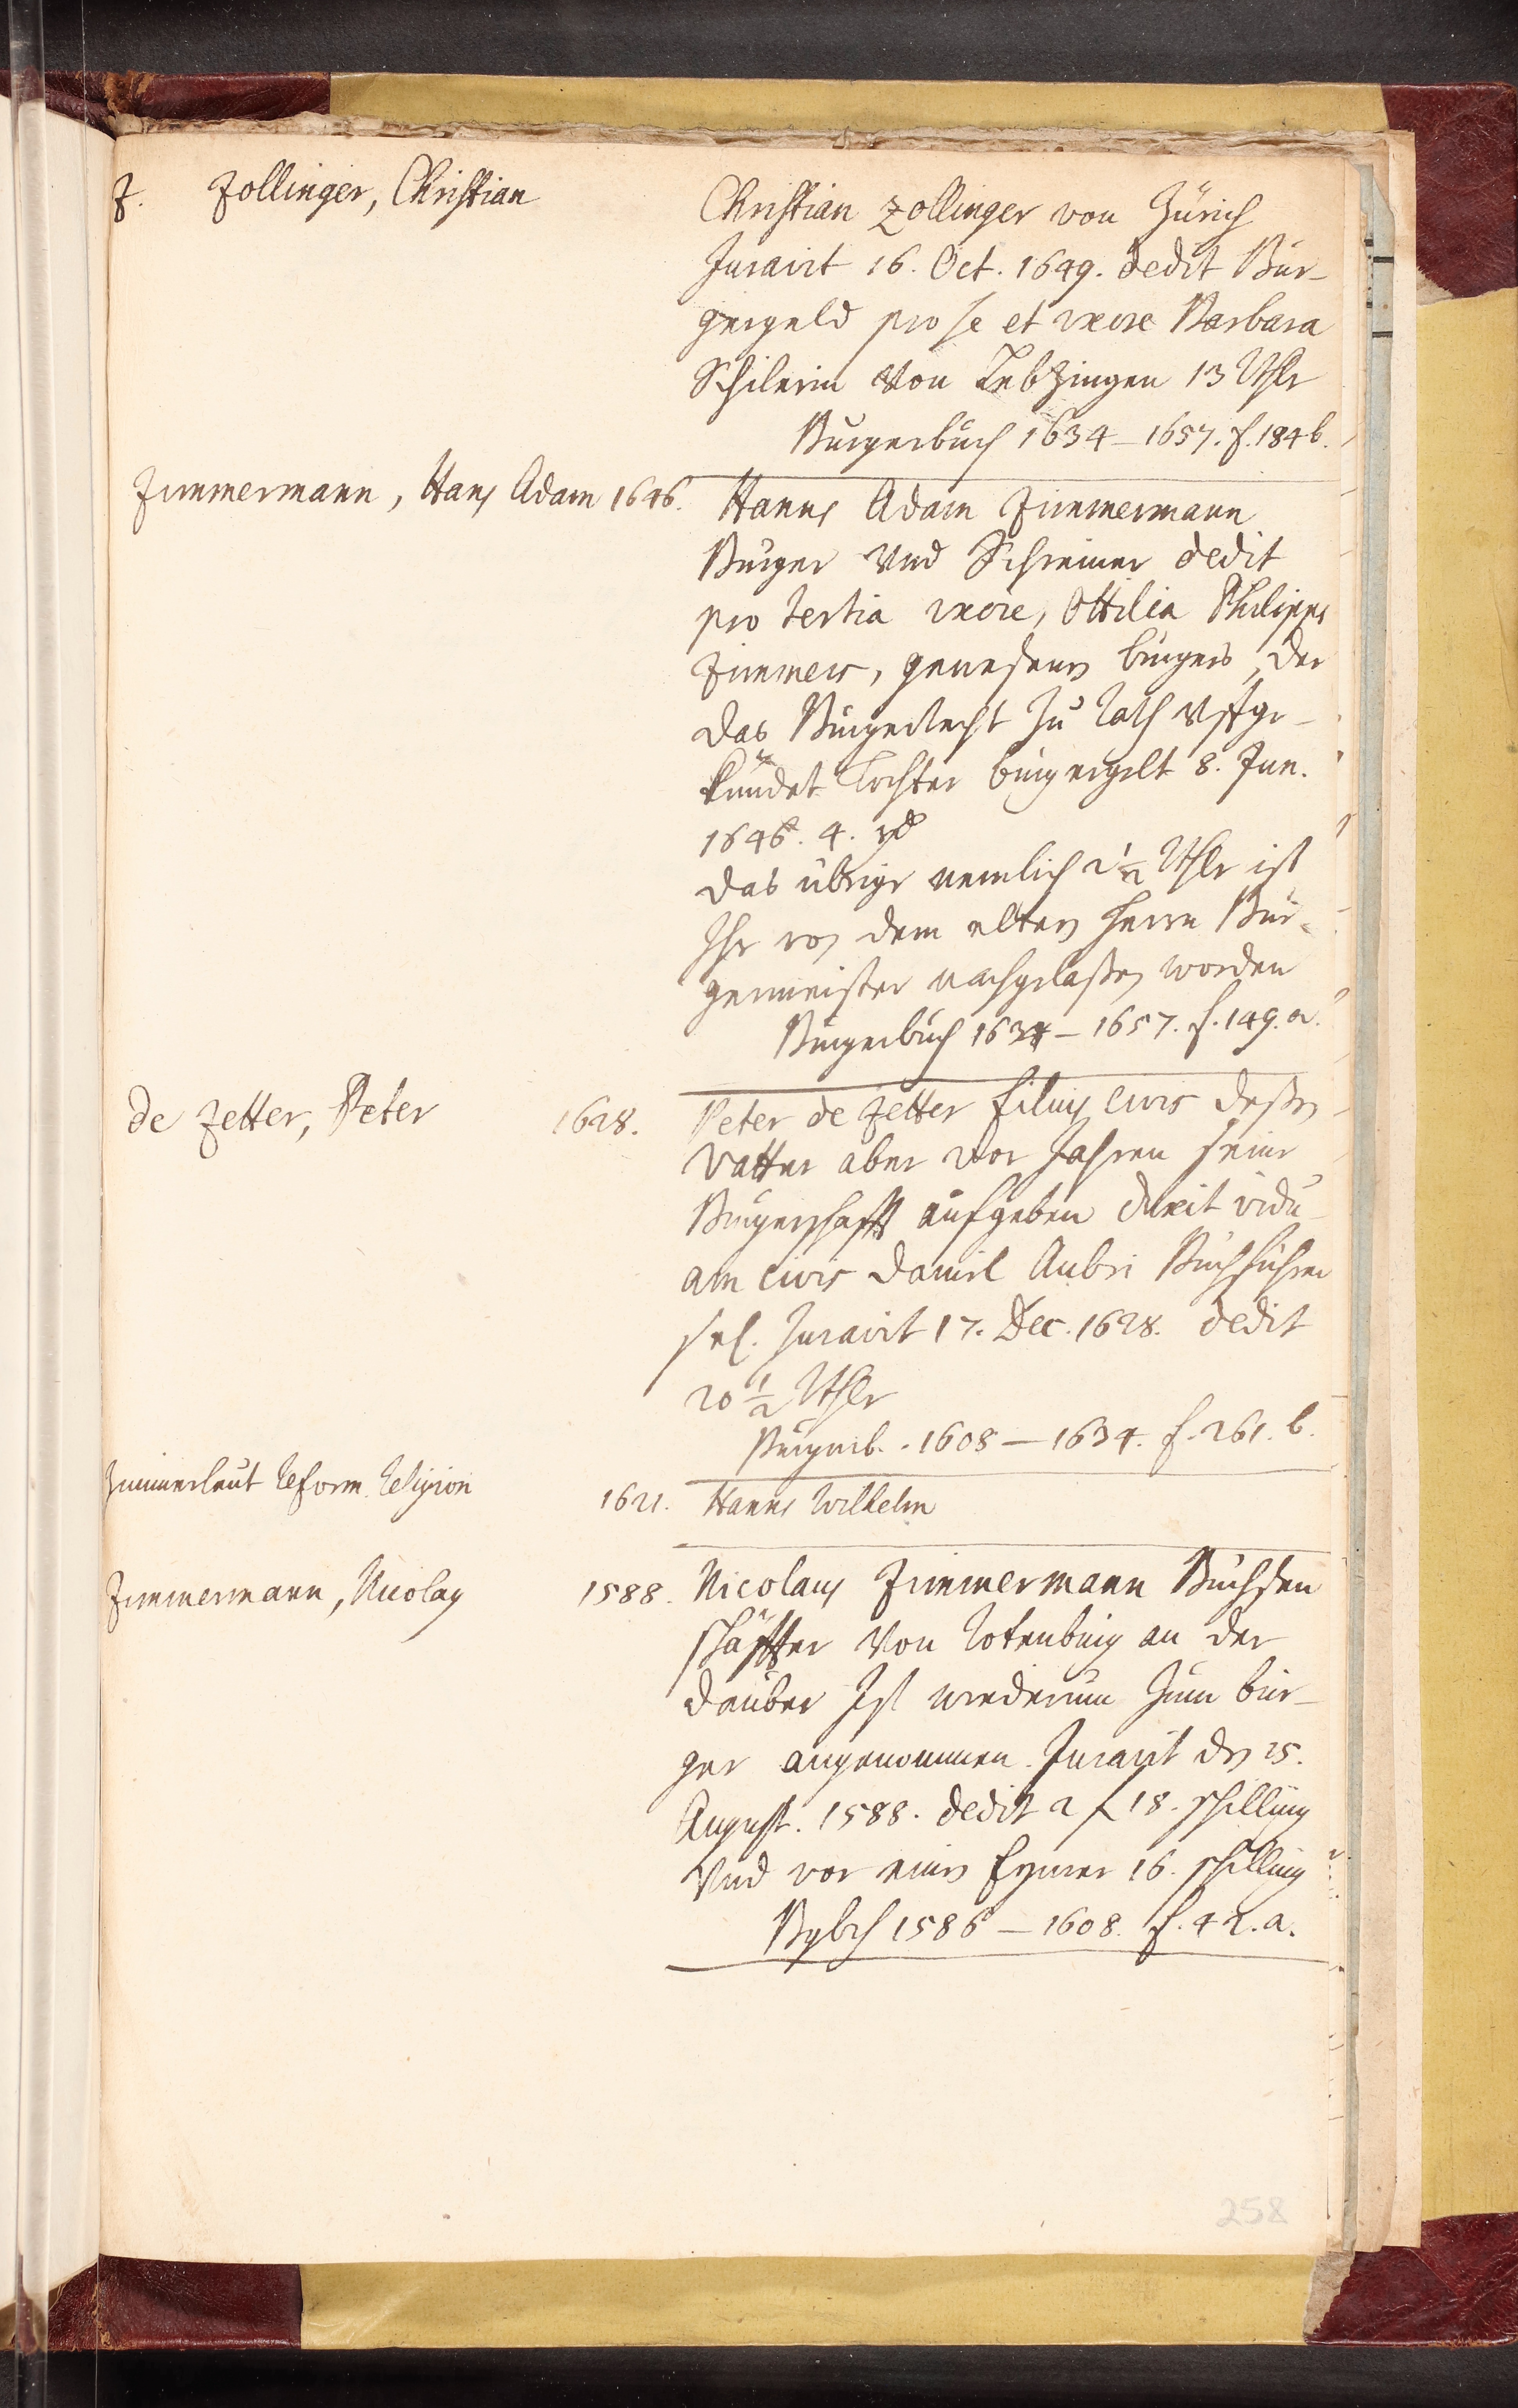 Z. Zollinger, Christian
Christian Zollinger von Zürich
Juravit 16. Oct. 1649. dedit Bür-
gergeld pro se et uxore Barbara
Schilerin von 13 Rthlr
Burgerbuch 1634–1657. f. 184 b.
Zimmermann, Hans Adam 1646.
Hanns Adam Zimmermann
Burger und Schreiner dedit
pro tertia uxore, Ottilia Philipps
Zimmers, gewesenen burgers, der
das Burgerrecht zu Rath uffge-
kündet Tochter burgergelt 8. Jun.
1646. 4.
das übrige nemlich 2 1/2 Rthlr ist
Ihr von dem eltern Herrn Bur-
germeister nachgelaßen worden
Burgerbuch 1634–1657. f. 149. a.
de Zetter, Peter 1628.
Peter de Zetter filius civis deßen
Vatter aber vor Jahren seine
Burgerschafft aufgeben duxit vidu-
am civis Daniel Aubri Buchführer
sel. Juravit 17. Dec. 1628. dedit
20 1/2 Rthlr
Burgerb. 1608–1634. f. 261. b.
Zimmerleut Reform. Religion
1621. Hanns Wilhelm
Zimmermann, Nicolaus 1588.
Nicolaus Zimmermann Büchsen
schäffter von Rotenburg an der
dauber Ist wiederum zum bur-
ger angenommen. Juravit den 25.
August. 1588. dedit 2 f 18. schilling
Und vor einen Eymer 16. schilling
Bgbch 1586–1608. f. 42. a.
258